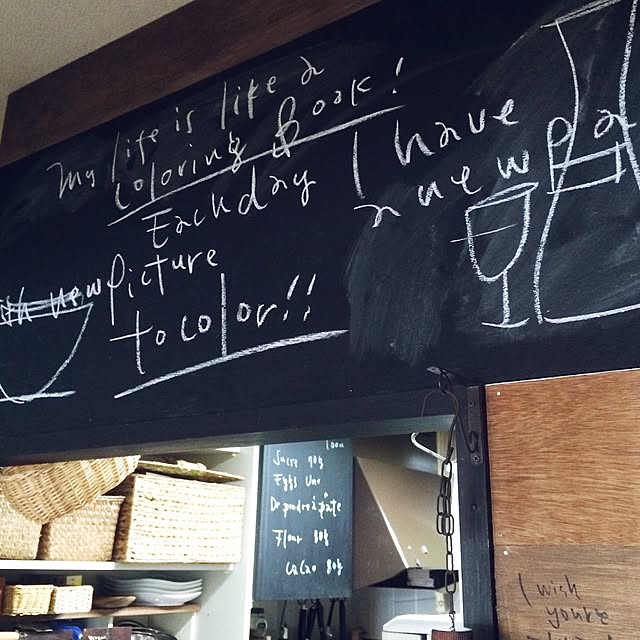 My life is like a
coloring Book!
Each day I have
a new pa
new picture
to color!!
Sucre 90g
Eggs Une
De poudre à pâte
Flour 80g
Cacao 80g
I wish
yours